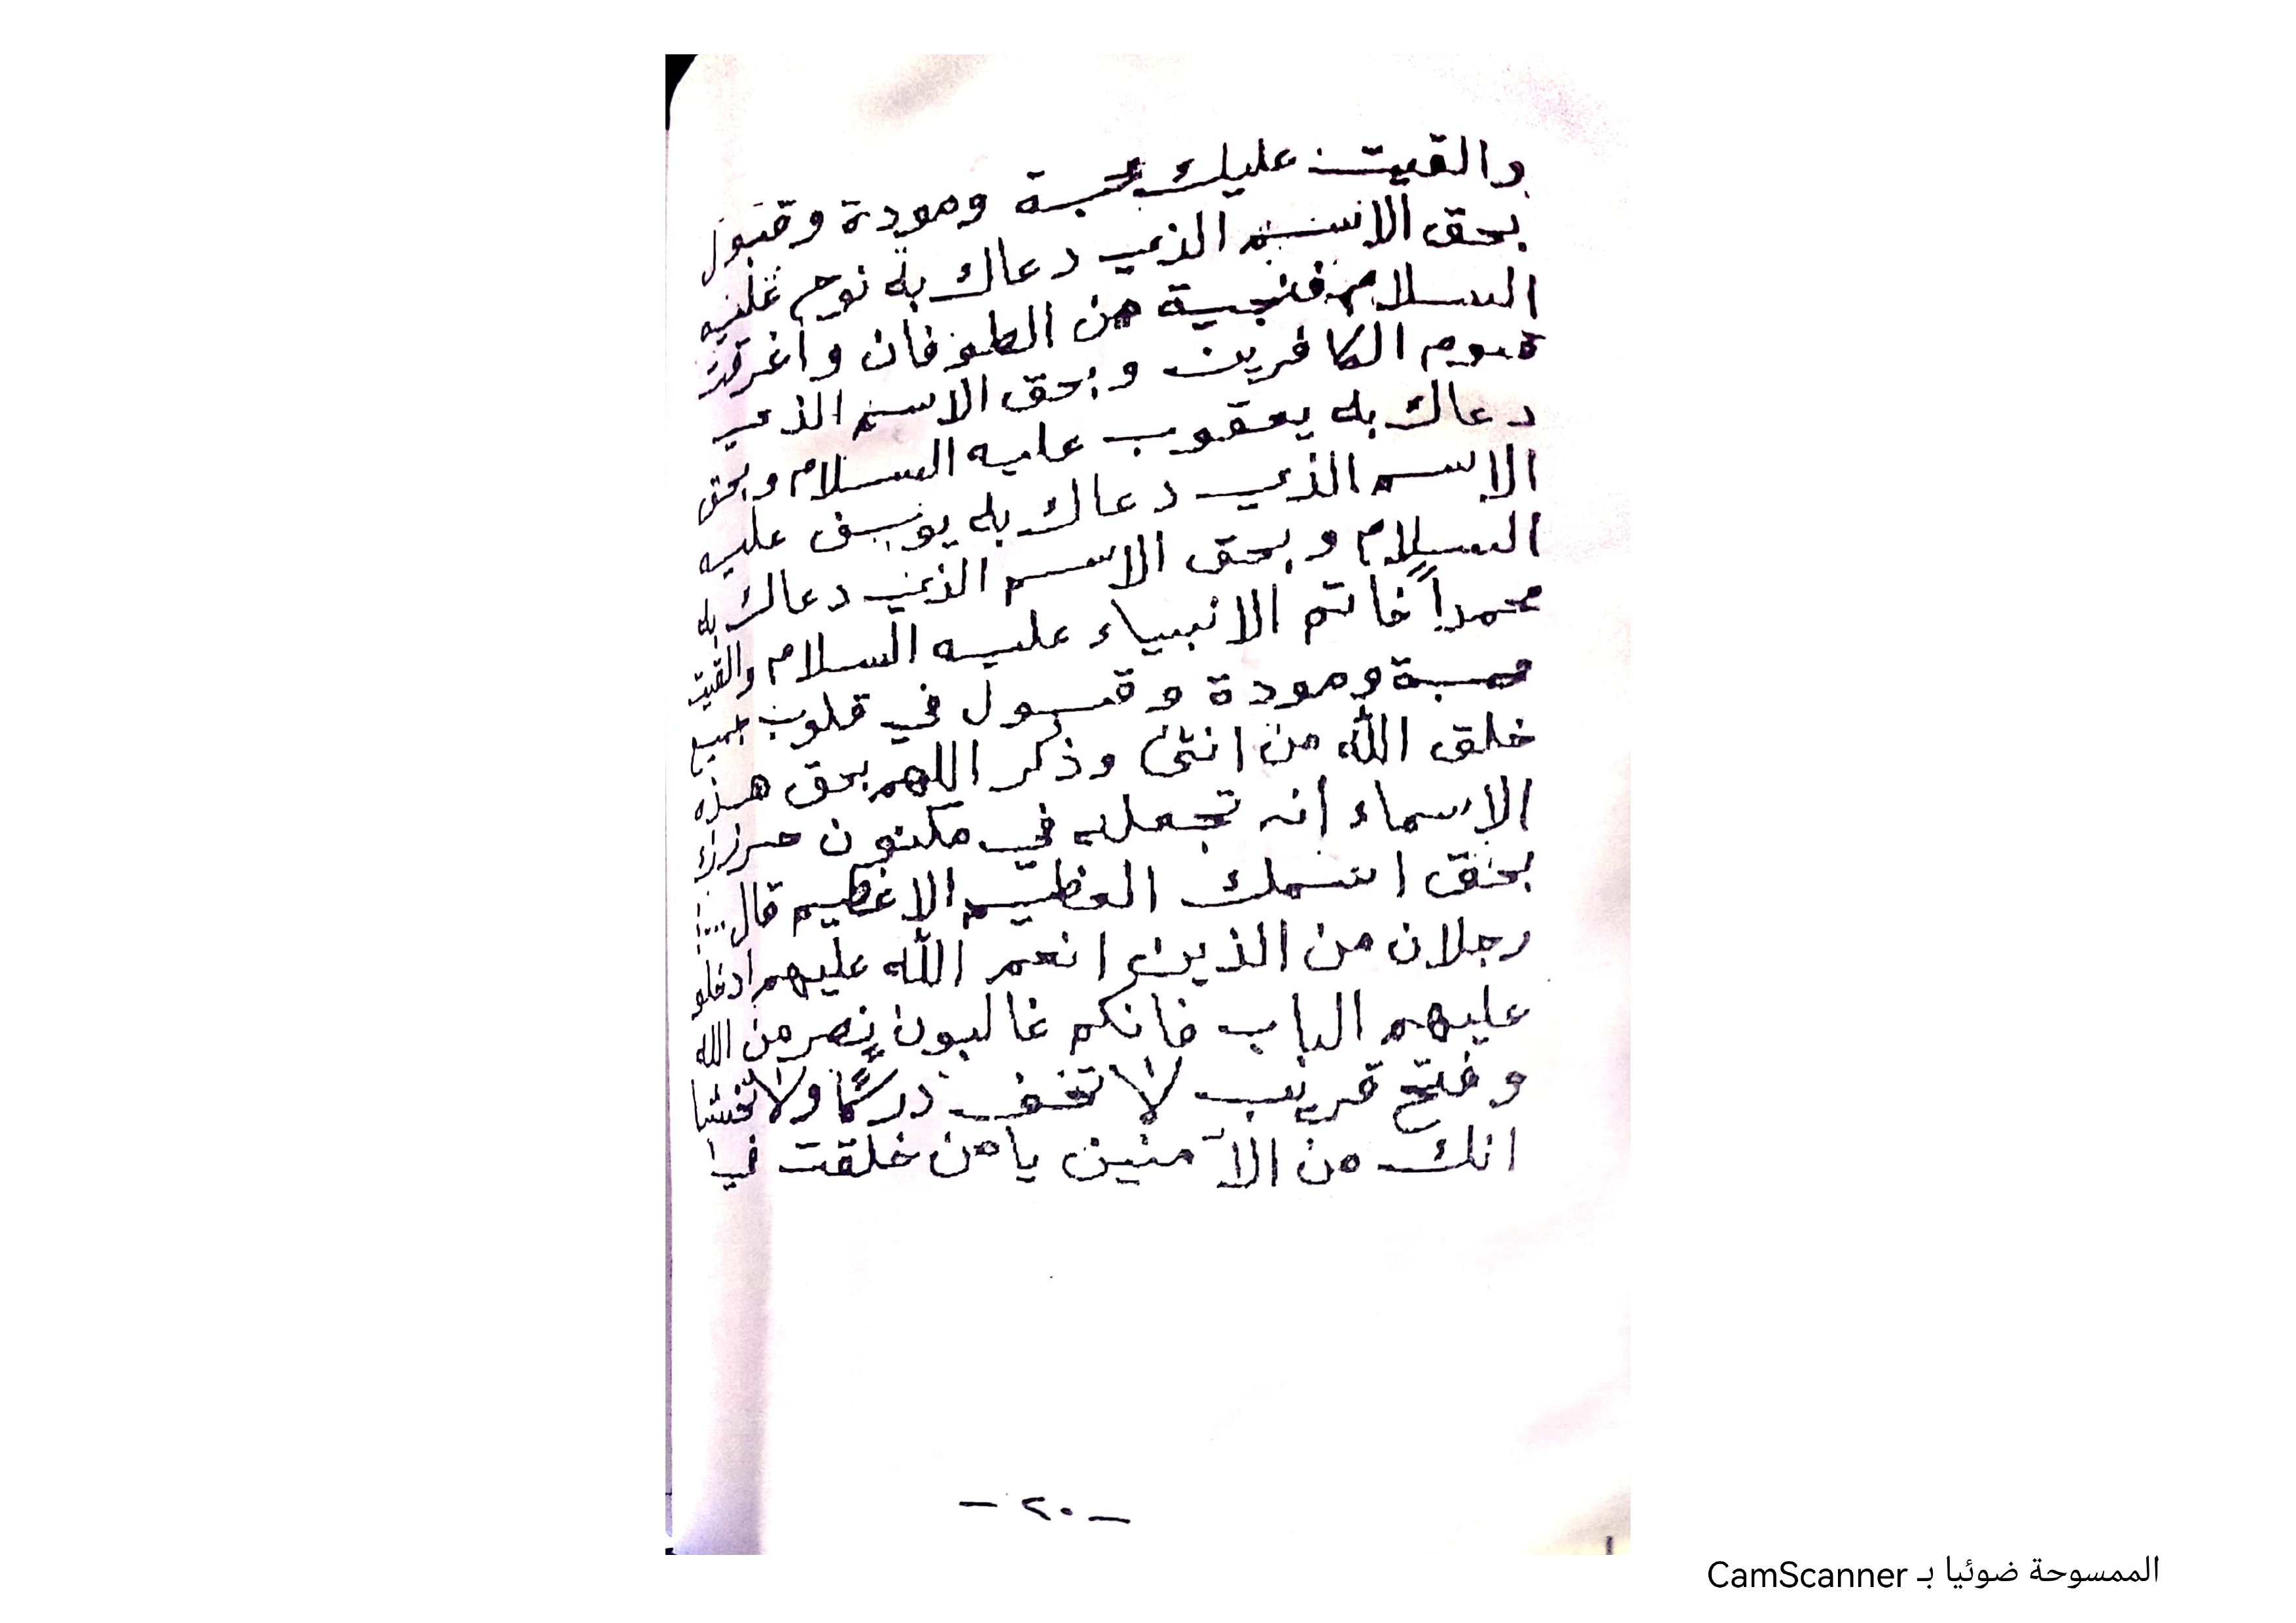 والقيت عليك محبة ومودة وقبول
بحق الاسم الذي دعاك به نوح عليه
السلام فنجية من الطوفان واغرقت
قوم الكافرين وبحق الاسم الذي
دعاك به يعقوب عليه السلام وبحق
الاسم الذي دعاك به يوسف عليه
السلام وبحق الاسم الذي دعاك به
محمداً خاتم الانبياء عليه السلام والقيت
محبة ومودة وقبول في قلوب جميع
خلق الله من انثى وذكر اللهم بحق هذه
الاسماء انه تجعله في مكنون حرزك
بحق اسمك العظيم الاعظيم قال
رجلان من الذين انعم الله عليهم ادخلو
عليهم الباب فانكم غالبون نصر من الله
وفتح قريب لا تخف دركاً ولا تخشا
انك من الآمنين يا من خلقت فيا
- ٢٠ -
الممسوحة ضوئيا بـ CamScanner